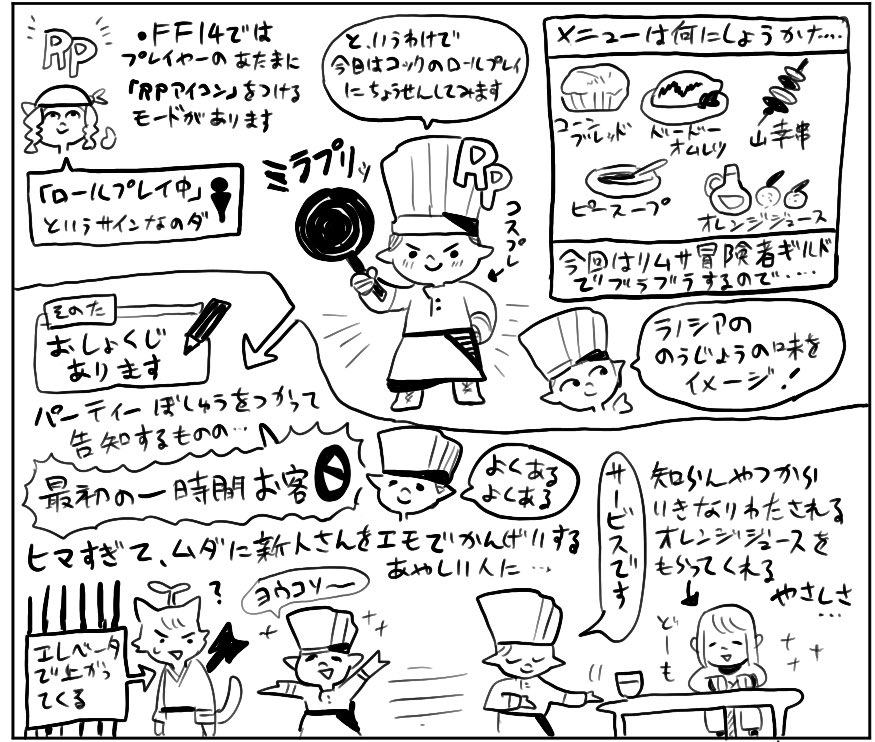 RP
・FF14では
プレイヤーのあたまに
「RPアイコン」をつける
モードがあります
「ロールプレイ中」
というサインなのダ
と、いうわけで
今日はコックのロールプレイ
にちょうせんしてみます
ミラプリッ
RP
コスプレ
メニューは何にしようかな…
コーン
ブレッド
ドードー
オムレツ
山幸串
ピースープ
オレンジジュース
今回はリムサ冒険者ギルド
でブラブラするので‥‥
ラノシアの
のうじょうの味を
イメージ!
そのた
おしょくじ
あります
パーティーぼしゅうをつかって
告知するものの…
最初の一時間お客0
よくある
よくある
ヒマすぎて、ムダに新人さんをエモでかんげいする
あやしい人に…
エレベータ
で上がっ
てくる
?
ヨウコソ〜
サービスです
知らんやつから
いきなりわたされる
オレンジジュースを
もらってくれる
やさしさ
…
どーも